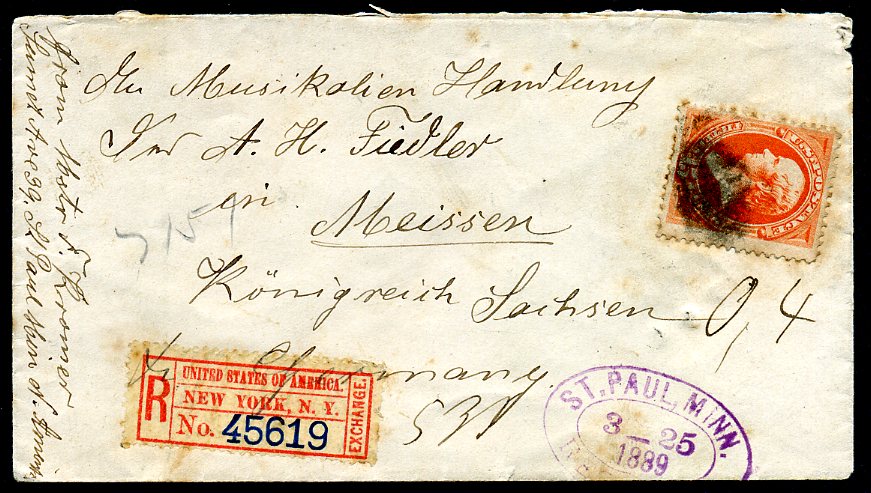 from Mstr F. Kromer
Sumet Ave 39, St Paul Minn N.
Musikalien Handlung
A. H. Fiedler
in
Meissen
Königreich Sachsen 0,4
Germany
R
UNITED STATES OF AMERICA.
NEW YORK, N. Y.
EXCHANGE.
No. 45619
ST. PAUL, MINN.
3 – 25
1889